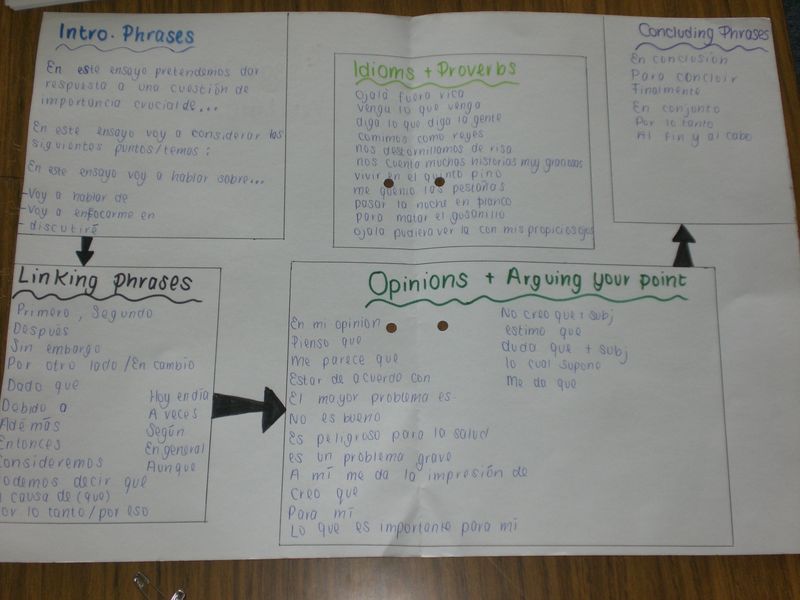 Intro. Phrases
En este ensayo pretendemos dar
respuesta a una cuestión de
importancia crucial de...
En este ensayo voy a considerar los
siguientes puntos/temas:
En este ensayo voy a hablar sobre...
- Voy a hablar de
- Voy a enfocarme en
- discutiré
Idioms + Proverbs
Ojalá fuera rica
venga lo que venga
diga lo que diga la gente
comimos como reyes
nos destornillamos de risa
nos cuenta muchas historias muy graciosas
vivir en el quinto pino
me quemo las pestañas
pasar la noche en blanco
para matar el gusanillo
ojala pudiera ver la con mis propicios ojos
Concluding Phrases
En conclusión
Para concluir
Finalmente
En conjunto
Por lo tanto
Al fin y al cabo
Linking phrases
Primero, Segundo
Después
Sin embargo
Por otro lado / En cambio
Dado que
Debido a
Además
Entonces
Consideremos
Podemos decir que
A causa de (que)
Por lo tanto / por eso
Hoy en día
A veces
Según
En general
Aunque
Opinions + Arguing your point
En mi opinion
Pienso que
Me parece que
Estar de acuerdo con
El mayor problema es
No es bueno
Es peligroso para la salud
es un problema grave
A mí me da la impresión de
Creo que
Para mí
Lo que es importante para mi
No creo que + subj
estimo que
duda que + subj
lo cual supone
Me da que